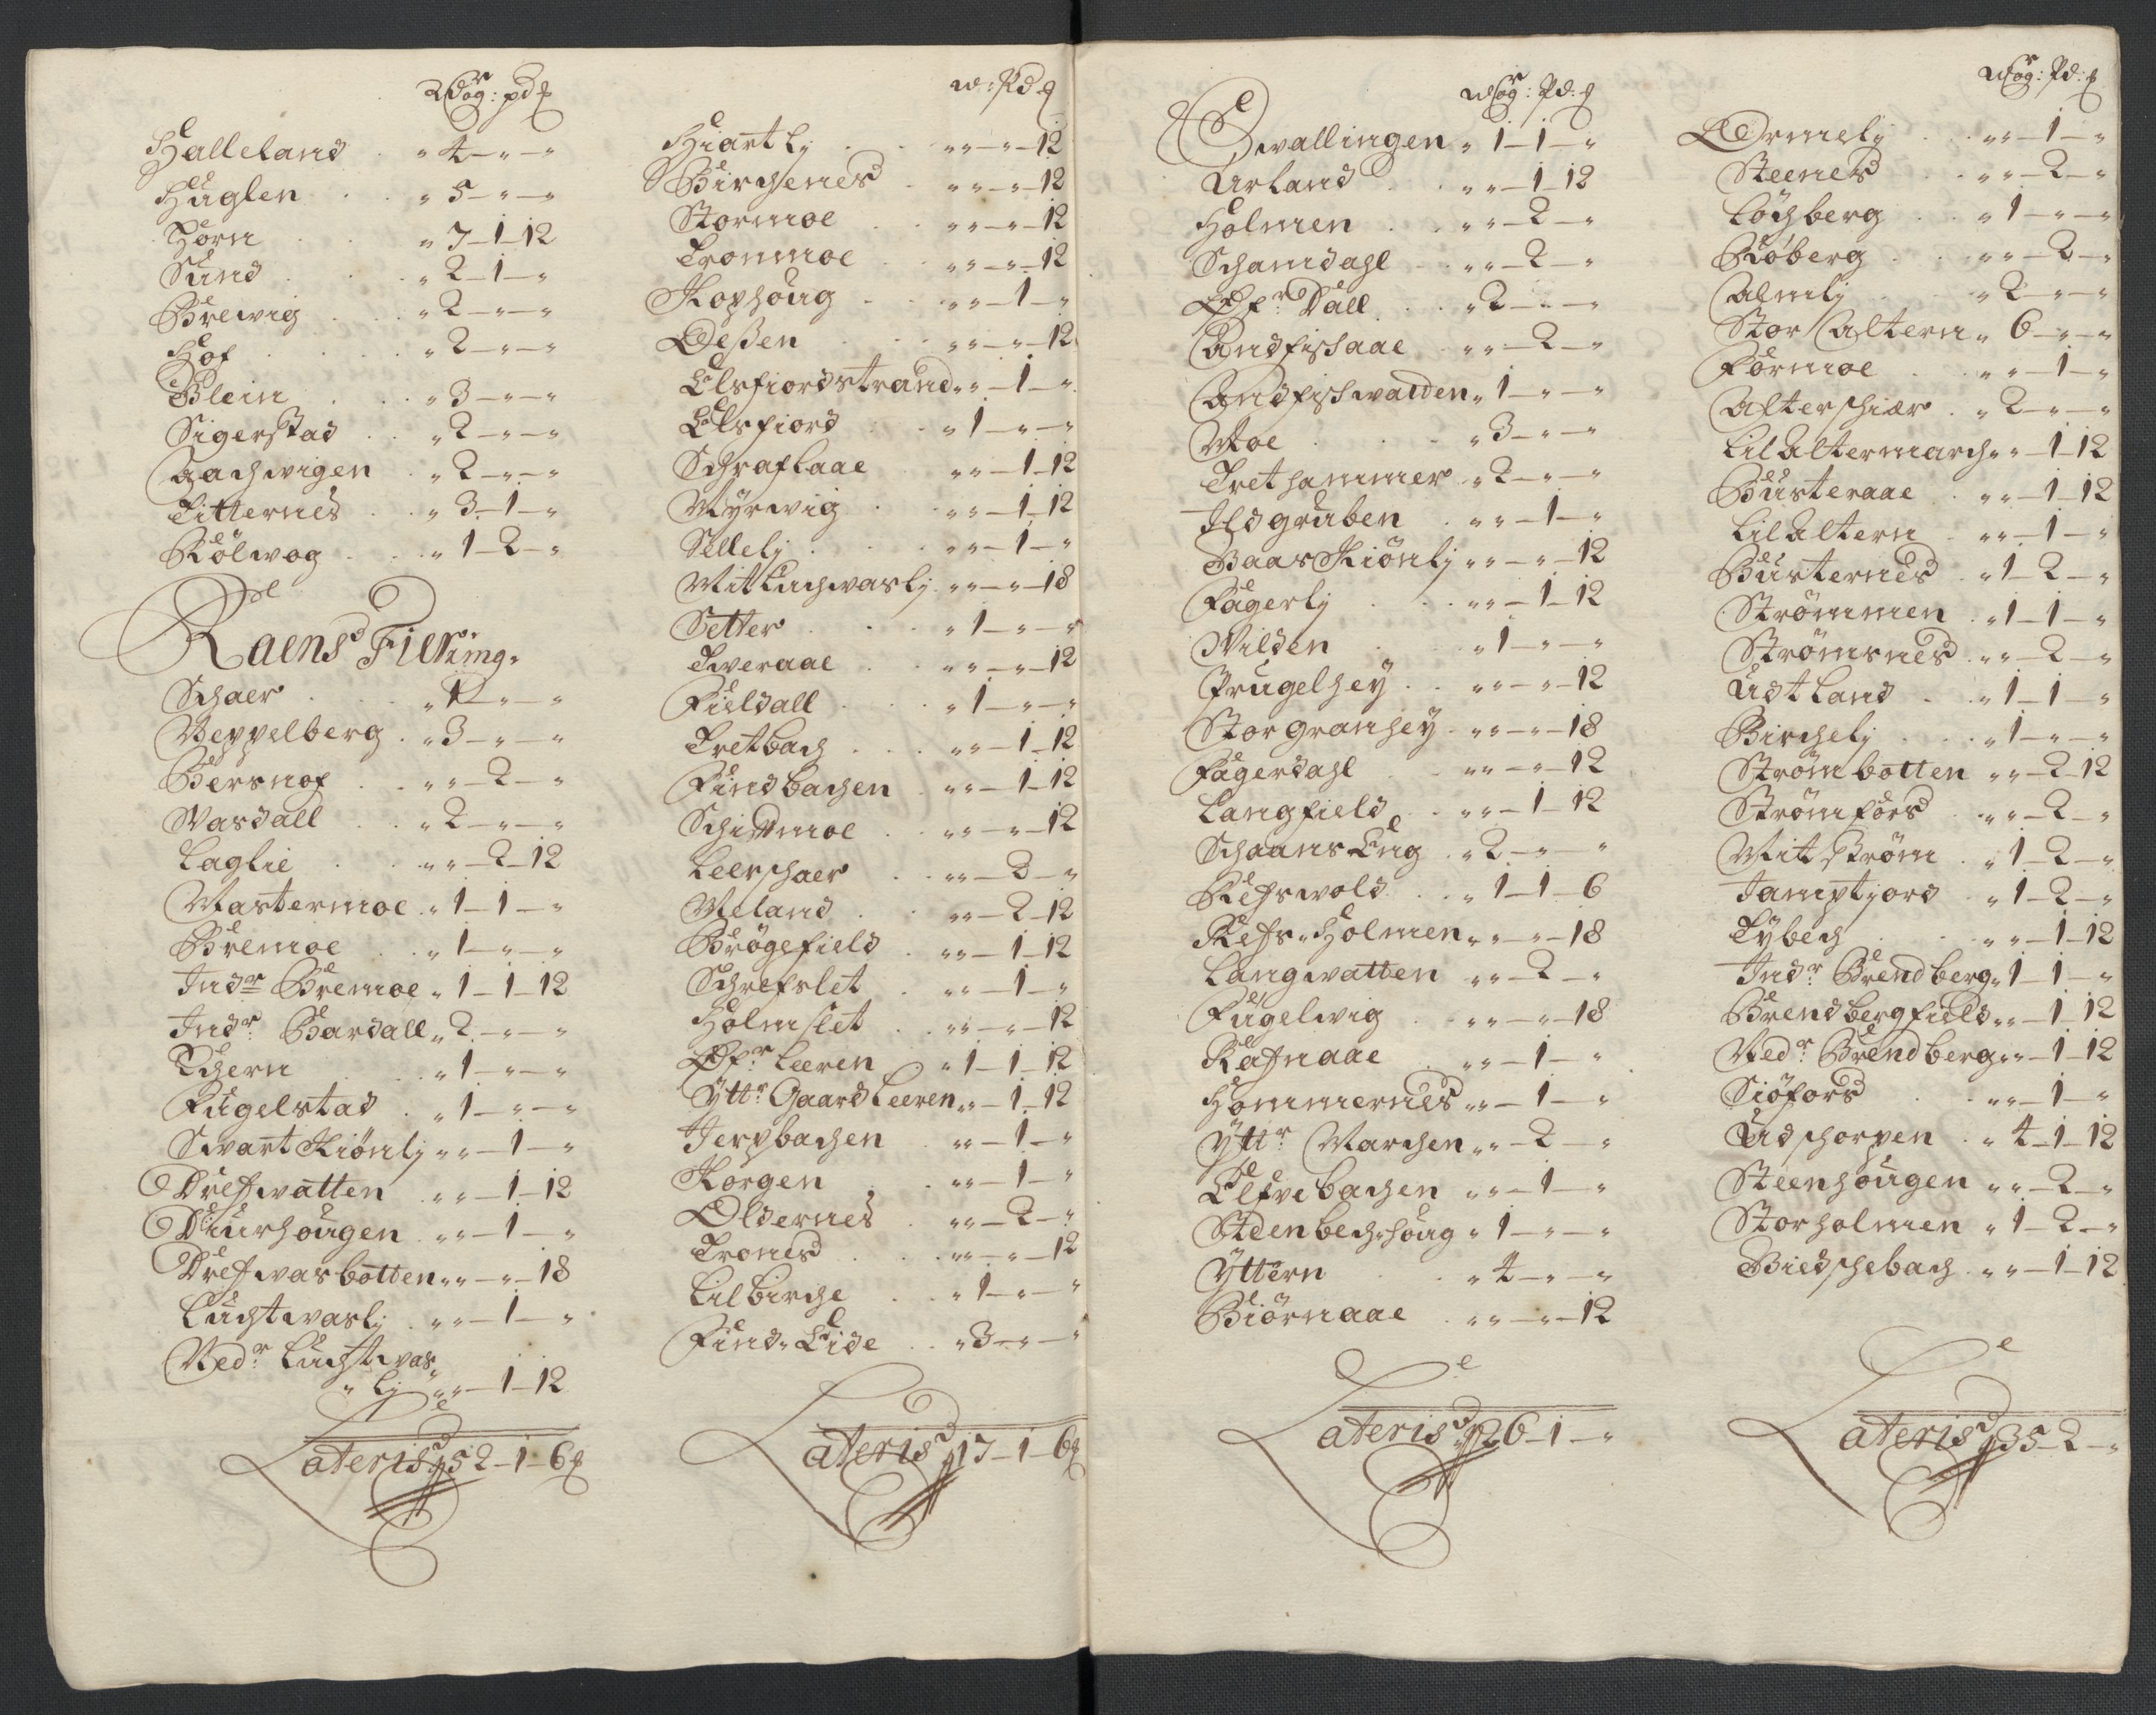 Wog: pd ℔
Halleland „ 4 – „ – „
Huglen „ 5 – „ – „
Horn „ 7 – 1 – 12
Sund „ 2 – 1 – „
Brewig „ 2 – „ – „
Hof „ 2 – „ – „
Blein „ 3 – „ – „
Sigerstad „ 2 – „ – „
Aachwigen „ 2 – „ – „
Titternes „ 3 – 1 – „
Kölwog „ 1 – 2 – „
Raens Fierng.
Schaer „ 1 – „ – „
Veppelberg „ 3 – „ – „
Bersnof „ „ – 2 – „
Wasdall „ 2 – „ – „
Laglie „ „ – 2 – 12
Mastermoe „ 1 – 1 – „
Bremoe „ 1 – „ – „
Indr Bremoe „ 1 – 1 – 12
Indr Bardall „ 2 – „ – „
Tchern „ 1 – „ – „
Fugelstad „ 1 – „ – „
Swart Kiönlj „ „ – 1 – „
Drefwatten „ „ – 1 – 12
Diurhougen „ „ – 1 – „
Drefwasbotten „ „ – „ – 18
Luchtwaslj „ „ – 1 – „
Nedr Luchtwas„
„ lj „ „ – 1 – 12
Lateris 52 – 1 – 6 ℔
w: Pd ℔
Hiartlj „ „ – „ – 12
Birchenes „ „ – „ – 12
Stormoe „ „ – „ – 12
Tronmoe „ „ – „ – 12
Kophoug „ „ – 1 – „
Deßen „ „ – „ – 12
Elsfiordstrand „ „ – 1 – „
Elsfiord „ 1 – „ – „
Schraflaae „ „ – 1 – 12
Myrwig „ „ – 1 – 12
Sellelj „ „ – 1 – „
Mit Luchwaslj „ „ – „ – 18
Setter „ 1 – „ – „
Tweraae „ „ – „ – 12
Fieldall „ 1 – „ – „
Tretbach „ „ – 1 – 12
Findbachen „ „ – 1 – 12
Schimmoe „ „ – „ – 12
Leerschaer „ „ – 2 – „
Meland „ „ – 2 – 12
Brögefield „ „ – 1 – 12
Schrefslet „ „ – 1 – „
Holmslet „ „ – „ – 12
Øfr Leeren „ 1 – 1 – 12
Yttr Gaard Leeren „ „ – 1 – 12
Jerpbachen „ „ – 1 – „
Korgen „ „ – 1 – „
Oldernes „ „ – 2 – „
Trones „ „ – „ – 12
Lilbirche „ 1 – „ – „
Find„ Eide „ 3 – „ – „
Lateris 17 – 1 – 6 ℔
Wog: Pd: ℔
Swallingen „ 1 – 1 – „
Urland „ „ – 1 – 12
Holmen „ „ – 2 – „
Schamdahl „ „ – 2 – „
Øfr Dall „ 2 – „ – „
Andfishaae „ „ – 2 – „
Andfishwatden „ 1 – „ – „
Moe „ 3 – „ – „
Trethammer „ 2 – „ – „
Ildgruben „ „ – 1 – „
Baas Kiönlj „ „ – „ – 12
Fagerlj „ „ – 1 – 12
Wilden „ 1 – „ – „
Prugelhey „ „ – „ – 12
Storgranhey „ „ – „ – 18
Fagerdahl „ „ – „ – 12
Langfield „ „ – 1 – 12
Schaans Eng „ 2 – „ – „
Refswold „ 1 – 1 – 6
Refs„ Holmen „ „ – „ – 18
Langwatten „ „ – 2 – „
Fugelwig „ „ – „ – 18
Rafnaae „ „ – 1 – „
Hommernes „ „ – 1 – „
Yttr Marchen „ „ – 2 – „
Elfvebachen „ „ – 1 – „
Steenbechhoug „ 1 – „ – „
Yttern „ 4 – „ – „
Biörnaae „ „ – „ – 12
Lateris 26 – 1 – „
Wog: Pd: ℔
Ørmelj „ „ – 1 – „
Steenes „ „ – 2 – „
Löchberg „ 1 – „ – „
Röberg „ „ – 2 – „
Almlj „ 2 – „ – „
Stor Altern „ 6 – „ – „
Formoe „ „ – 1 – „
Alterschiær „ 2 – „ – „
Lil Altermarch „ „ – 1 – 12
Busteraae „ „ – 1 – 12
Lil Altern „ „ – 1 – „
Busternes „ 1 – 2 – „
Strömmen „ 1 – 1 – „
Strömsnes „ „ – 2 – „
Udtland „ 1 – 1 – „
Birchelj „ 1 – „ – „
Strömbotten „ „ – 2 – 12
Strömfors „ „ – 2 – „
Mitström „ 1 – 2 – „
Jamptjord „ 1 – 2 – „
Tybech „ „ – 1 – 12
Indr Brendberg „ 1 – 1 – „
Brendbergfield „ „ – 1 – 12
Nedr Brendberg „ „ – 1 – 12
Siöfors „ „ – 1 – „
Udschorpen „ 4 – 1 – 12
Steenhougen „ „ – 2 – „
Storholmen „ 1 – 2 – „
Biedschebach „ „ – 1 – 12
Lateris 35 – 2 – „